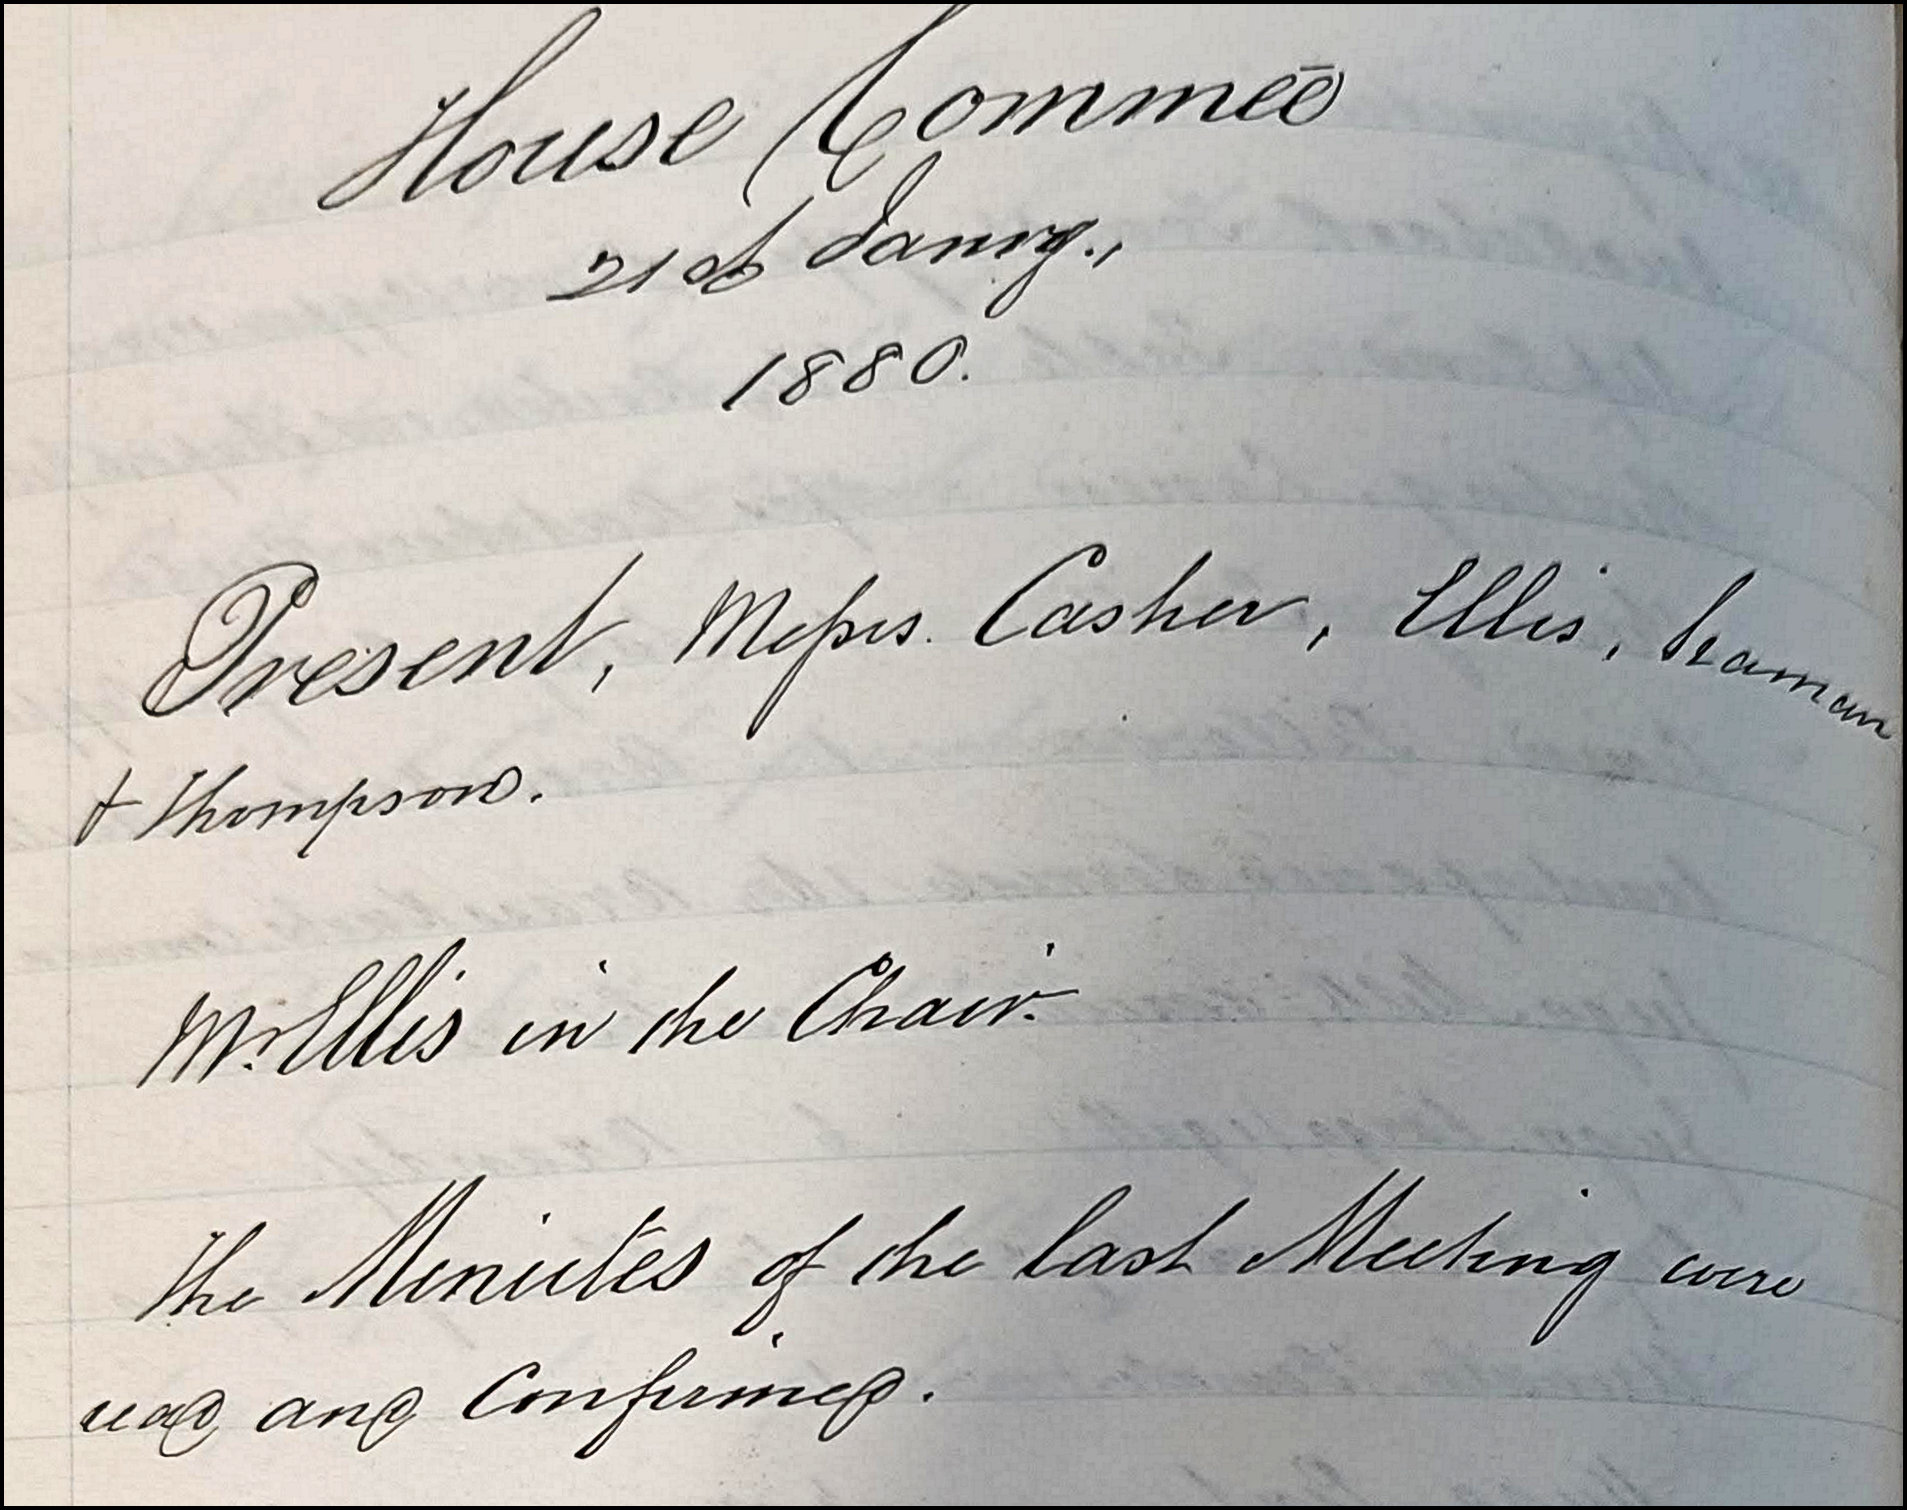 House Commēē
21st Januy.,
1880.
Present, Messrs. Casher, Ellis, Seaman
& Thompson.
Mr. Ellis in the Chair.
The Minutes of the last Meeting were
read and Confirmed.